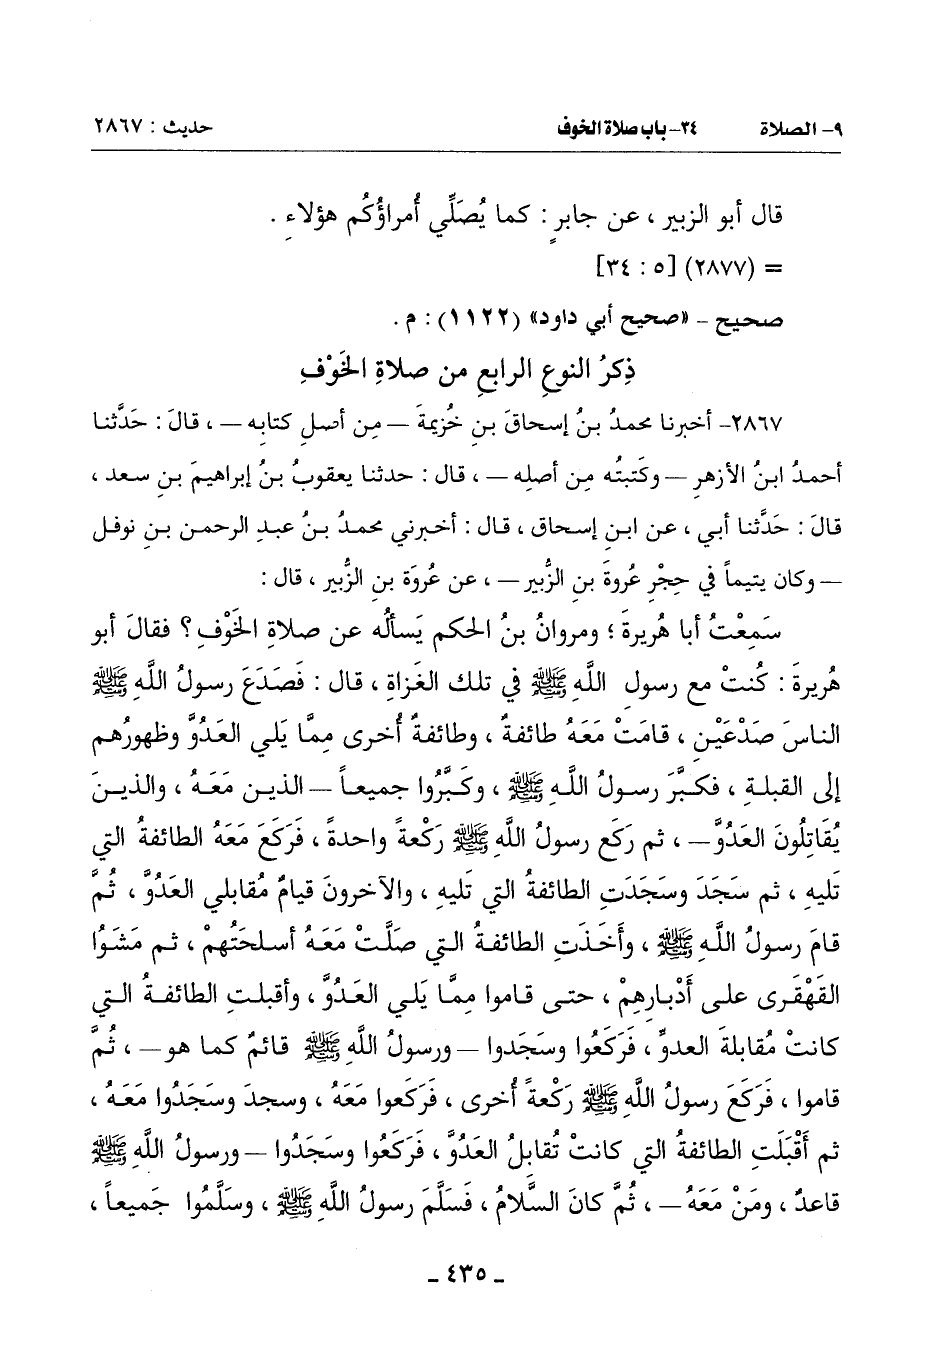 ٩- الصلاة ٣٤- باب صلاة الخوف حديث : ٢٨٦٧
قال أبو الزبير ، عن جابرٍ : كما يُصَلِّي أُمراؤُكُم هؤلاءِ .
= (٢٨٧٧) [٥ : ٣٤]
صحيح - «صحيح أبي داود» (١١٢٢) : م .
ذِكرُ النوعِ الرابعِ من صلاةِ الخَوْفِ
٢٨٦٧- أخبرنا محمدُ بنُ إسحاقَ بنِ خُزيمةَ – مِن أصلِ كتابه – ، قالَ : حَدَّثنا
أحمدُ ابنُ الأزهرِ – وكَتبتُه مِن أصلِه – ، قال : حدثنا يعقوبُ بنُ إبراهيمَ بنِ سعد ،
قالَ : حَدَّثنا أبي ، عن ابنِ إسحاق ، قال : أخبرني محمدُ بنُ عبدِ الرحمن بنِ نوفل
– وكان يتيماً في حِجْرِ عُروةَ بنِ الزُّبير – ، عن عُروَة بنِ الزُّبير ، قال :
سَمِعْتُ أبا هُريرةَ ؛ ومروانُ بنُ الحكم يَسألُه عن صلاةِ الخَوْفِ ؟ فقالَ أبو
هُريرةَ : كُنتْ مع رسول اللَّهِ ﷺ في تلك الغَزاةِ ، قال : فَصَدَعَ رسولُ اللَّهِ ﷺ
الناسَ صَدْعَيْنِ ، قامَتْ مَعَهُ طائفةٌ ، وطائفةٌ أُخرى مِمَّا يَلي العَدُوَّ وظهورُهم
إلى القبلةِ ، فكبَّرَ رسولُ اللَّهِ ﷺ ، وكَبَّرُوا جميعاً – الذين مَعَهُ ، والذينَ
يُقَاتِلُونَ العَدُوَّ – ، ثم رَكَع رسولُ اللَّهِ ﷺ رَكْعةً واحدةً ، فَرَكَعَ مَعَهُ الطائفةُ التي
تَليهِ ، ثم سَجَدَ وسَجَدَتِ الطائفةُ التي تَليه ، والآخرونَ قيامٌ مُقابلي العَدُوَّ ، ثُمَّ
قامَ رسولُ اللَّهِ ﷺ ، وأَخَذَتِ الطائفةُ التي صَلَّتْ مَعَهُ أسلحَتُهمْ ، ثم مَشَوُا
القَهْقرى على أَدْبارِهِمْ ، حتى قاموا مِمَّا يَلي العَدُوَّ ، وأقبلتِ الطائفةُ التي
كانتْ مُقابلةَ العدوِّ ، فَرَكَعُوا وسَجَدوا – ورسولُ اللَّهِ ﷺ قائمٌ كما هو – ، ثُمَّ
قاموا ، فَرَكَعَ رسولُ اللَّهِ ﷺ رَكْعةً أُخرى ، فَرَكَعوا مَعَهُ ، وسجدَ وسَجَدُوا مَعَهُ ،
ثم أَقْبَلَتِ الطائفةُ التي كانتْ تُقابلُ العَدُوَّ ، فَرَكَعُوا وسَجَدُوا – ورسولُ اللَّهِ ﷺ
قاعدٌ ، ومَنْ مَعَهُ – ، ثُمَّ كانَ السَّلامُ ، فَسَلَّمَ رسولُ اللَّهِ ﷺ ، وسلَّمُوا جَميعاً ،
- ٤٣٥ -